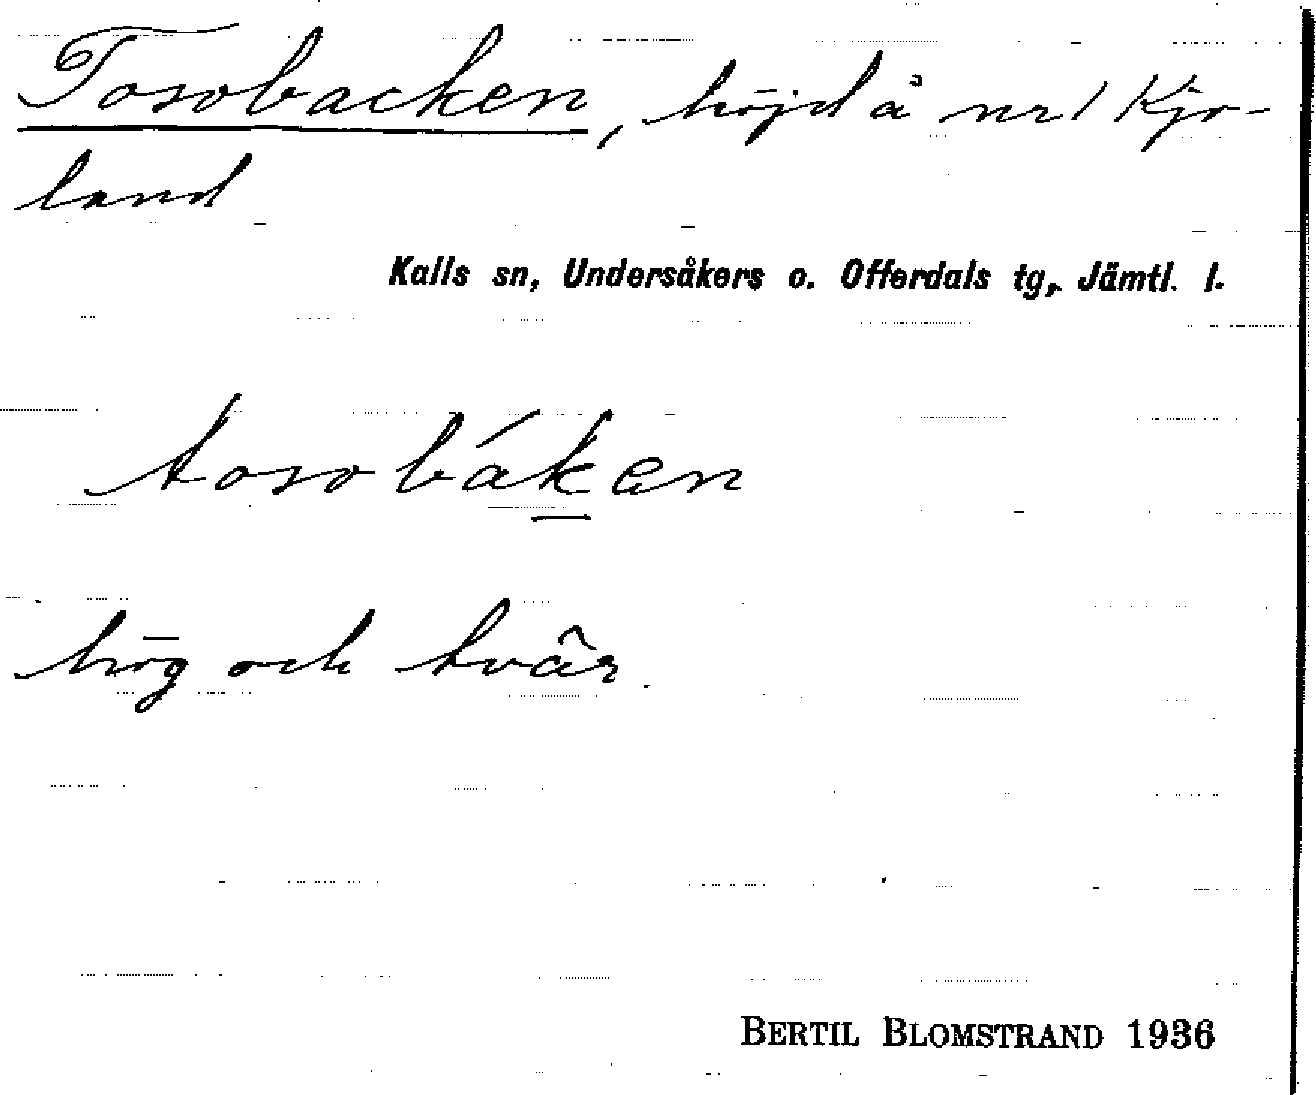 Tosobacken, höjd å nr 1 Kjo-
land
Kalls sn, Undersåkers o. Offerdals tg, Jämtl. l.
tosobáken
hög och tvär
BERTIL BLOMSTRAND 1936